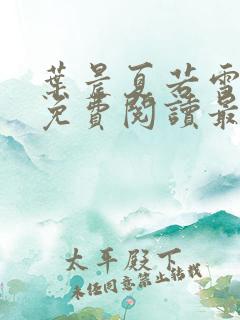 葉晨夏若雪
免費閱讀最
太平殿下
未經同意禁止轉載